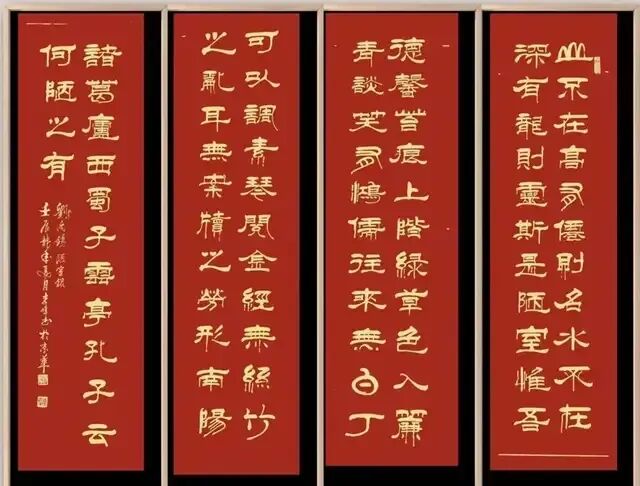 山不在高有僊則名水不在
深有龍則靈斯是陋室惟吾
德馨苔痕上階緑草色入簾
青談笑有鴻儒往來無白丁
可以調素琴閱金經無絲竹
之亂耳無案牘之勞形南陽
諸葛廬西蜀子雲亭孔子云
何陋之有
劉禹錫陋室銘
壬辰龍年夏月